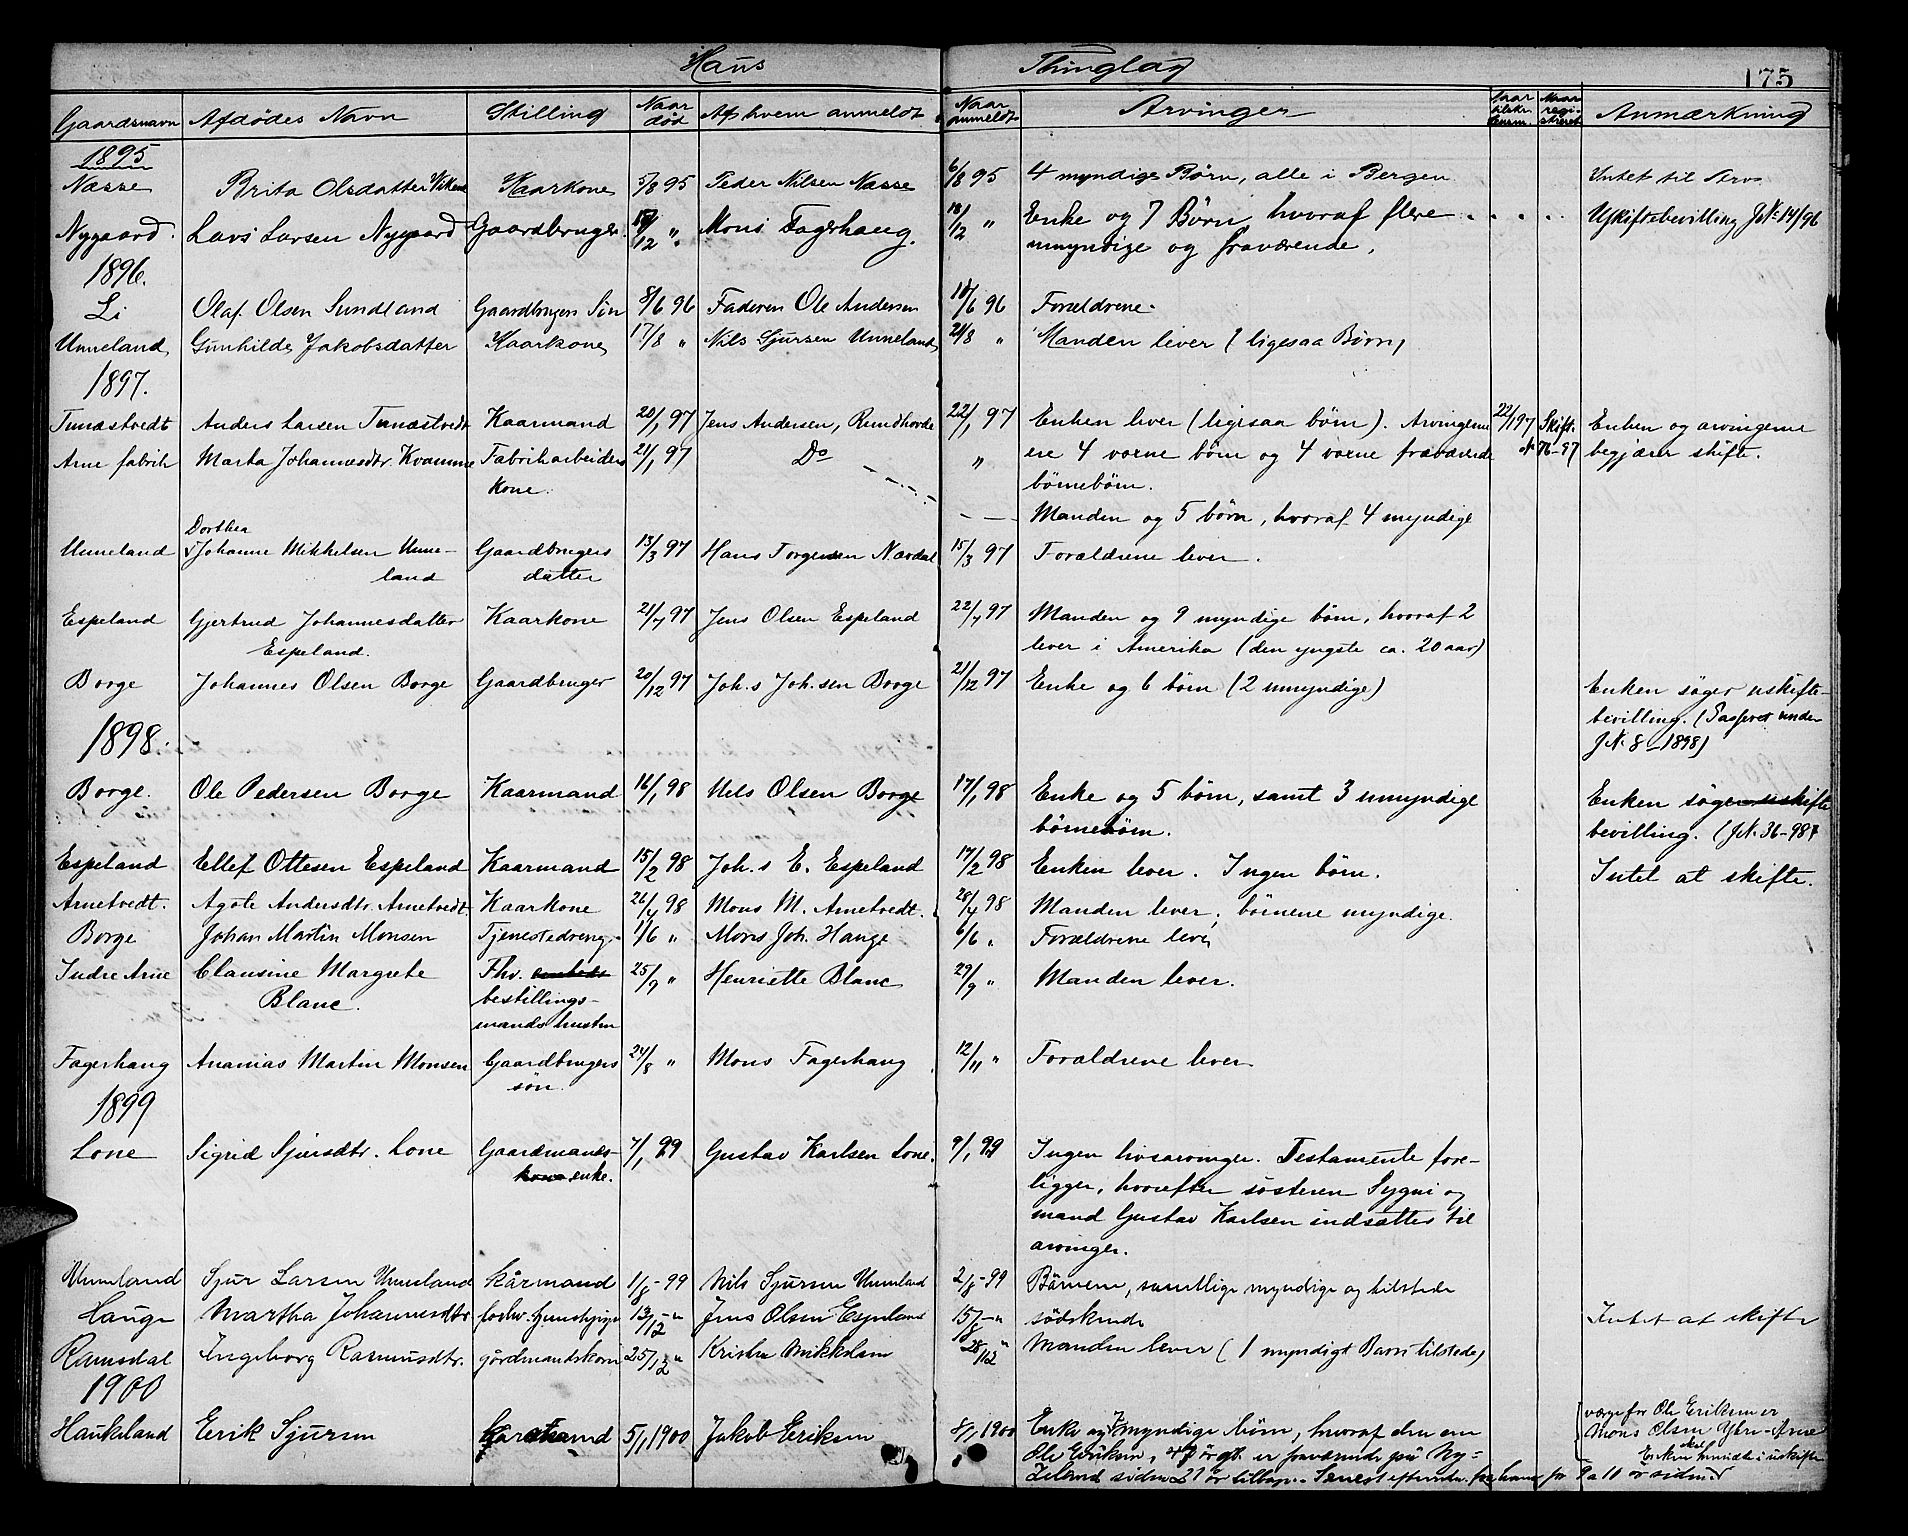 Haus Thinglag 175
Gaardsnavn Afdødes Navn Stilling Naar død Af hvem anmeldt Naar anmeldt Arvinger Anmærkning
1895
Næsse Brita Olsdatter Kaarkone 5/8 95 Peder Nilsen Næsse 6/8 95 4 myndige Børn, alle i Bergen Intet til Arv
Nygaard. Lars Larsen Nygaard Gaardbruger 12 " Mons Fagerhaug. 18/2 " Enke og 7 Børn, hvoraf flere . . . . Uskiftebevilling J.No 14/96
umyndige og fraværende,
1896.
Li Olaf Olsen Sundland Gaardbrugers Søn 8/6 96 Faderen Ole Andersen 10/6 96 Forældrene.
Unneland, Gunhilde Jakobsdatter Kaarkone 17/8 " Nils Sjursen Unneland, 24/8 " Manden lever (ligesaa Børn)
1897.
Tunæstvedt Anders Larsen Tunæstvedt Kaarmand 20/1 97 Jens Andersen, Rundhovde 22/1 97 Enken lever (ligesaa børn). Arvingerne 22/1 97 Skift. Enken og arvingerne
Arne fabrik Marta Johannesdtr. Kvamme Fabrikarbeiders 21/1 97 Do " ere 4 vorne børn og 4 vorne fraværende 76-97 begjærer skifte.
kone. børnebørn.
Manden og 5 børn, hvoraf 4 myndige
Dorthea
Unneland Johanne Mikkelsen Unne- Gaardbrugers 13/3 97 Hans Torgersen Nævdal 15/3 97 Forældrene lever.
land datter
Espeland Gjertrud Johannesdatter Kaarkone 21/7 97 Jens Olsen Espeland 22/7 97 Manden og 9 myndige børn, hvoraf 2
Espeland. lever i Amerika (den yngste ca. 20 aar)
Borge Johannes Olsen Borge Gaardbruger 20/12 97 Joh.s Joh.sen Borge 21/12 97 Enke og 6 børn (2 umyndige) Enken søger uskifte-
bevilling. (Passeret under
1898. J.N. 8-1898)
Borge. Ole Pedersen Borge Kaarmand 16/1 98 Nels Olsen Borge 17/1 98 Enke og 5 børn, samt 3 umyndige Enken søger uskifte
børnebørn. bevilling. (J.N. 36-98)
Espeland Ellef Ottesen Espeland Kaarmand 15/2 98 Joh.s E. Espeland 17/2 98 Enken lever. Ingen børn. Intet at skifte.
Arnetvedt. Agate Andersdtr. Arnetvedt. Kaarkone 26/4 98 Mons M. Arnetvedt. 28/4 98 Manden lever; børnene myndige.
Borge Johan Martin Monsen Tjenestedreng. 1/6 " Mons Joh. Hauge 6/6 " Forældrene lever
Indre Arne Clausine Margrete Fhv. 25/9 " Henriette Blanc 29/9 " Manden lever.
Blanc. bestillings-
mands hustru
Fagerhaug Ananias Martin Monsen Gaardbrugers 24/8 " Mons Fagerhaug 12/11 " Forældrene lever
søn.
1899
Lone Sigrid Sjursdtr. Lone Gaardmands- 7/1 99 Gustav Karlsen Lone. 9/1 99 Ingen livsarvinger. Testamente fore-
kone enke. ligger, hvorefter søsteren Sygni og
mand Gustav Karlsen indsættes til
arvinger.
Unneland Sjur Larsen Unneland kårmand 1/8-99 Nils Sjursen Unneland 2/8-99 Børnene, samtlige myndige og tilstede
Hauge Martha Johannesdtr. 13/12-" Jens Olsen Espeland 15/-" sødskende Intet at skifte
Ramsdal Ingeborg Rasmusdtr. gårdmandskone 25/12 " Kristen Mikkelsen 28/12 " Manden lever (1 myndigt Barn tilstede)
1900
Haukeland Erik Sjursen Kaarmand 5/1 1900 Jakob Eriksen 8/1 1900 Enke og 7 myndige børn, hvoraf den ene værge for Ole Eriksen er
Ole Eriksen, er fraværende på Ny- Mons Olsen Ytre-Arne
Zeland siden 21 år tilbage. Senest efterretn. fra ham for 9 a 10 år siden. Enken skal hensidde i uskifte